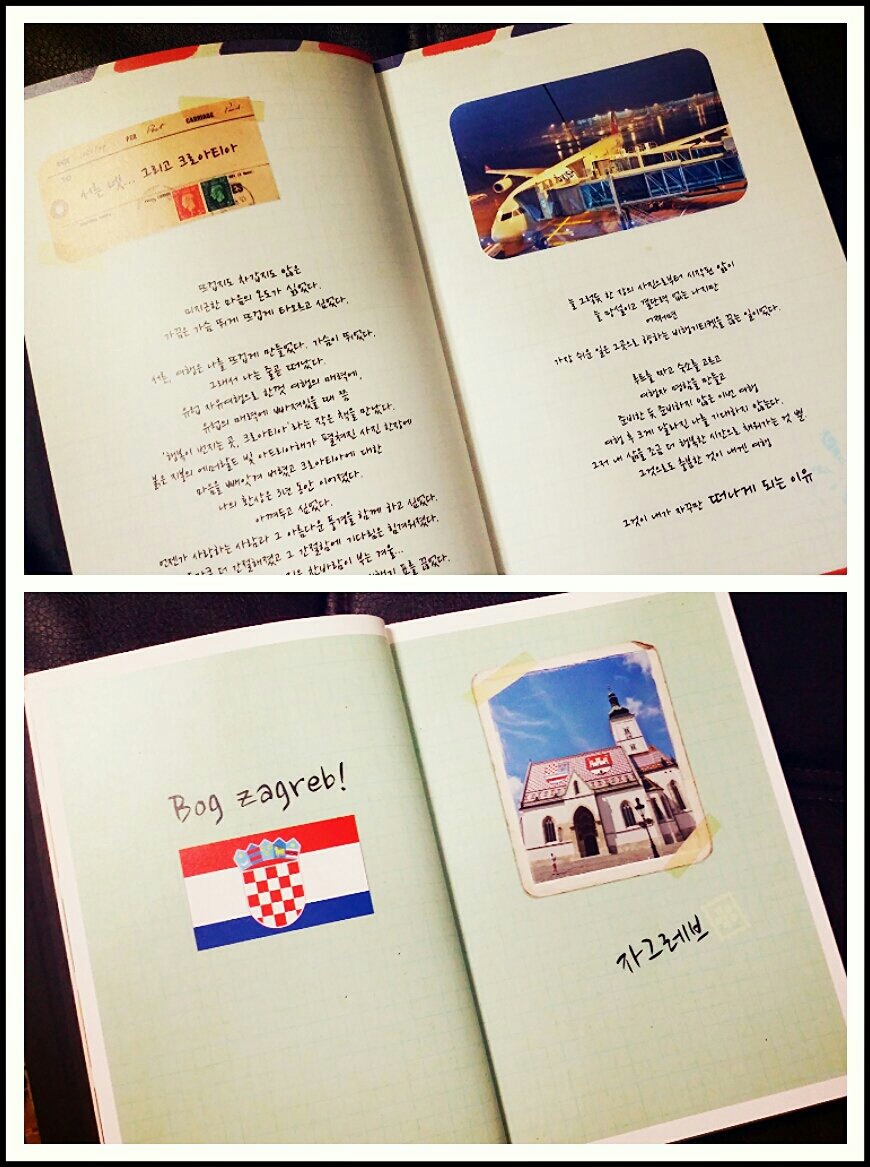 PER Post CARRIAGE Paid
TO
서른 넷... 그리고 크로아티아
뜨겁지도 차갑지도 않은
미지근한 마음의 온도가 싫었다.
가끔은 가슴 뛰게 뜨겁게 타오르고 싶었다.
서른, 여행은 나를 뜨겁게 만들었다. 가슴이 뛰었다.
그래서 나는 줄곧 떠났다.
유럽 자유여행으로 한껏 여행의 매력에,
유럽의 매력에 빠져있을 때 쯤
'행복이 번지는 곳, 크로아티아'라는 작은 책을 만났다.
붉은 지붕의 에메랄드 빛 아드리아해가 펼쳐진 사진 한장에
마음을 빼앗겨 버렸고 크로아티아에 대한
나의 환상은 3년 동안 이어졌다.
아껴두고 싶었다.
언젠가 사랑하는 사람과 그 아름다운 풍경을 함께 하고 싶었다.
더 간절해졌고 그 간절함에 기다림은 힘겨워졌다.
찬바람이 부는 겨울...
표를 끊었다.
늘 그렇듯 한 장의 사진으로부터 시작된 앓이
늘 망설이고 결단력 없는 나지만
어쩌면
가장 쉬운 일은 그곳으로 향하는 비행기티켓을 끊는 일이었다.
루트를 짜고 숙소를 고르고
여행자 명함을 만들고
준비한 듯 준비하지 않은 이번 여행
여행 후 크게 달라진 나를 기대하지 않는다.
그저 내 삶을 조금 더 행복한 시간으로 채워가는 것 뿐
그것으로도 충분한 것이 내겐 여행
그것이 내가 자꾸만 떠나게 되는 이유
Bog zagreb!
자그레브